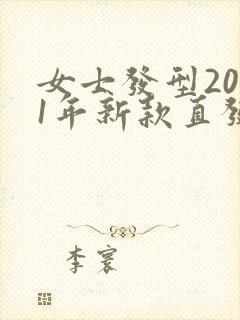 女士發型20
1年新款直發
李寰